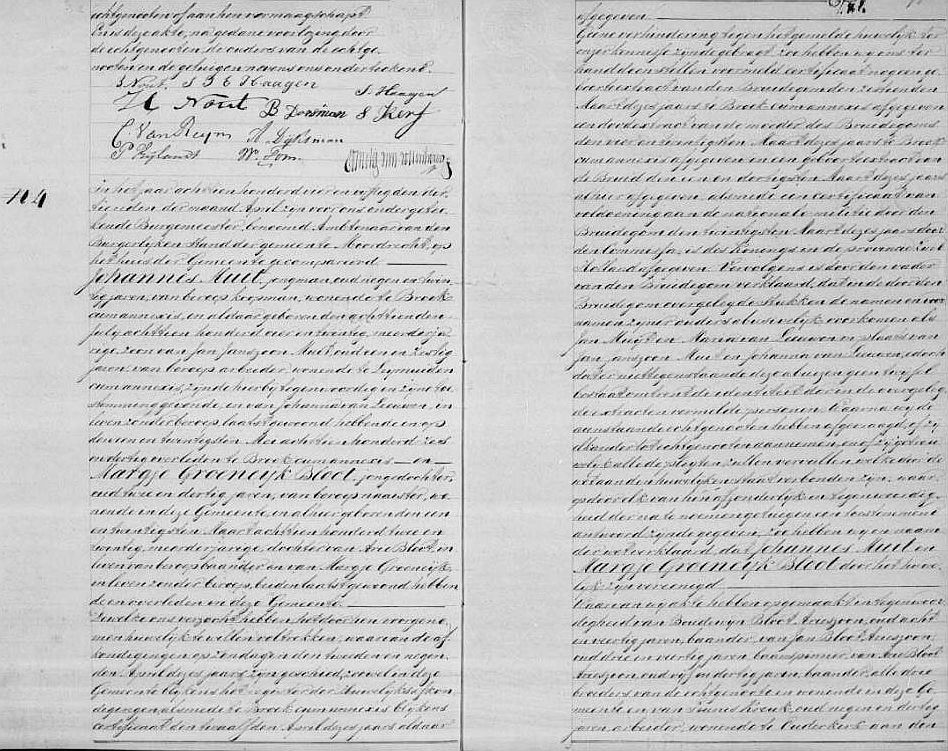 echtgenooten of aan hen vermaagschapt.
En is deze akte, na gedane voorlezing door
de echtgenooten, de ouders van de echtge
nooten en de getuigen nevens ons onderteekent.
J Nout. S J E Haagen J Haagen
H Nout B Dorsman S Kerf
C Van Ruym A. Dijksman
P Rijlandt Wm Tom
№4
in het jaar achttien honderd vier en vijftig den der
tienden der maand April zijn voor ons ondergetee
kende Burgemeester, benoemd Ambtenaar van den
Burgerlijken Stand der gemeente Moordrecht, op
het huis der Gemeente gecompareerd
Johannis Muit, jongman, oud negen en twin
tig jaren, van beroep koopman, wonende te Broek
cum annexis, en aldaar geboren den achttienden
july achttien honderd vier en twintig, meerderja
rige zoon van Jan Janszoon Muit, oud een en zestig
jaren, van beroep arbeider, wonende te Leymuiden
cum annexis, zijnde hierbij tegenwoordig en zijne toe
stemming gevende, en van Johanna van Leeuwen, in
leven zonder beroep, laatst gewoond hebbende en op
den een en twintigsten Mei achttien honderd zes
en dertig overleden te Broek cum annexis en
Margje Groenewyk Bloot, jongedochter,
oud twee en dertig jaren, van beroep naaister, wo
nende in deze Gemeente, en alhier geboren den een
en twintigsten Maart achttien honderd twee en
twintig, meerderjarige dochter van Arie Bloot, in
leven van beroep baander en van Margje Groenewyk,
in leven zonder beroep, beiden laatst gewoond hebben
de en overleden in deze Gemeente.
Dewelke ons verzocht hebben het door hen voorgeno
men huwelijk te willen voltrekken, waarvan de af
kondigingen op zondagen den tweeden en negen
den April dezes jaars zijn geschied, zoowel in deze
Gemeente blijkens het register der Huwelijksafkon
digingen, alsmede te Broek cum annexis blijkens
certificaat den twaalfden April dezes jaars aldaar
afgegeven.
Geene verhindering tegen het gemelde huwelijk ter
onzer kennisse zijnde gebragt, zoo hebben wij ons ter
hand doen stellen voormeld certificaat nog een ge
boorte extract van den Bruidegom den zesden
Maart dezes jaars te Broek cum annexis afgegeven
een dood extract van de moeder des Bruidegoms
den vier en twintigsten Maart dezes jaars te Broek
cum annexis afgegeven en een geboorte extract van
de Bruid den een en dertigsten Maart dezes jaars
alhier afgegeven, alsmede een certificaat van
voldoening aan de nationale militie door den
Bruidegom den twintigsten Maart dezes jaars door
den Commissaris des Konings in de provincie Zuid
Holland afgegeven. Vervolgens is door den vader
van den Bruidegom verklaard, dat in de door den
Bruidegom overgelegde stukken de namen en voor
namen zijner ouders abusivelijk voorkomen als
Jan Muyt en Maria van Leeuwen in plaats van
Jan Janszoon Muit en Johanna van Leeuwen, edoch
dat er niettegenstaande deze abuizen geen twijfel
bestaat omtrent de identiteit der in de overgeleg
de extracten vermelde personen. Waarna wij de
aanstaande echtgenooten hebben afgevraagd, of zij
elkander tot echtgenooten aannemen, en of zij getrou
welijk alle de pligten zullen vervullen, welke door de
wet aan den huwelijken staat verbonden zijn, waar
op door elk van hen afzonderlijk en tegenwoordig
heid der na te noemen getuigen een toestemmend
antwoord zijnde gegeven, zoo hebben wij in naam
der wet verklaard, dat Johannes Muit en
Margje Groenewyk Bloot door het huwe
lijk zijn vereenigd
Waarvan wij akte hebben opgemaakt in tegenwoor
digheid van Boudewyn Bloot Arieszoon, oud acht
en veertig jaren, baander, van Jan Bloot Arieszoon,
oud drie en veertig jaren, baanspinner, van Arie Bloot
Arieszoon, oud vijf en dertig jaren, baander, alle drie
broeders van de echtgenoote en wonende in deze Ge
meente en van Teunes Kreuk, oud negen en dertig
jaren, arbeider, wonende te Ouderkerk aan den